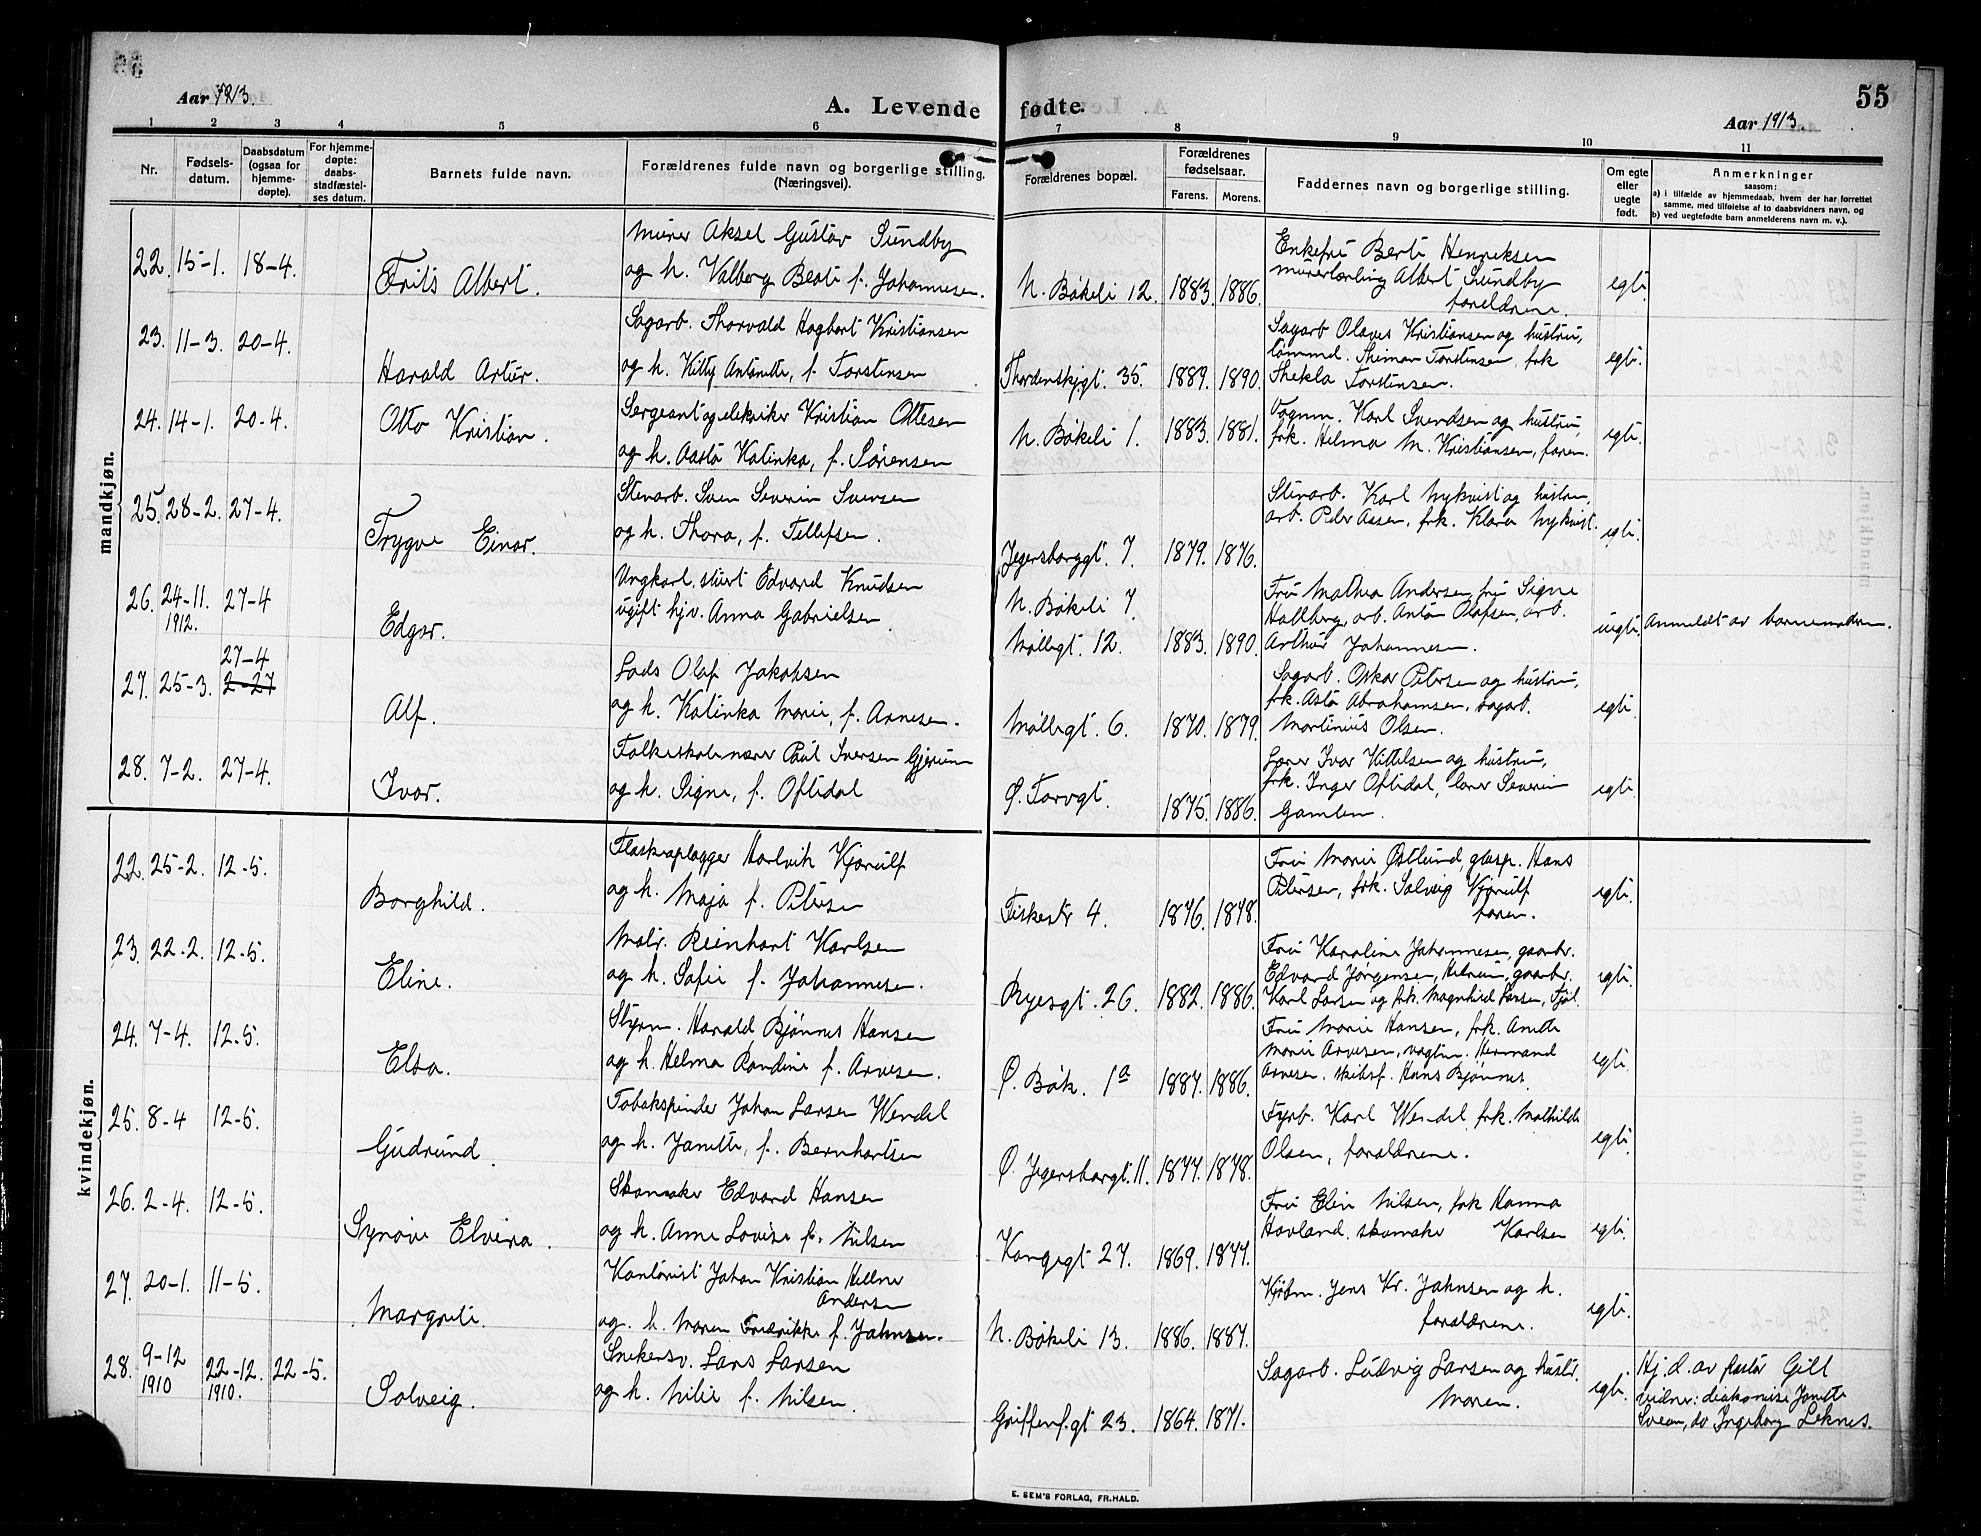 Aar 1913.
A. Levende fødte.
Aar 1913.
55
1 2 3 4 5 6 7 8 9 10 11
Nr.
Fødsels-
datum.
Daabsdatum
(ogsaa for
hjemme-
døpte).
For hjemme-
døpte:
daabs-
stadfæstel-
ses datum.
Barnets fulde navn.
Forældrenes fulde navn og borgerlige stilling.
(Næringsvei).
Forældrenes bopæl.
Forældrenes
fødselsaar.
Farens. Morens.
Faddernes navn og borgerlige stilling.
Om egte
eller
uegte
født.
Anmerkninger
saasom:
a) i tilfælde av hjemmedaab, hvem der har forrettet
samme, med tilføielse af to daabsvidners navn, og
b) ved uegtefødte barn anmelderens navn m. v.).
mandkjøn.
22. 15-1. 18-4.
Frits Albert.
Murer Aksel Gustav Sundby
og h. Valborg Beate f. Johannesen.
N. Bøkeli 12. 1883. 1886.
Enkefru Berte Henriksen
murerlærling Albert Sundby
forældrene.
egte.
23. 11-3. 20-4.
Harald Artur.
Sagarb. Thorvald Hagbart Kristiansen
og h. Kitty Antonette, f. Torstensen
Thordenskjgt. 35. 1889. 1890.
Sagarb Olaves Kristiansen og hustru,
tømmerm. Theimon Torstensen, frk
Thekla Torstensen.
egte.
24. 14-1. 20-4.
Otto Kristian.
Sergeant og elektriker Kristian Ottesen
og h. Aasta Kalinka, f. Sørensen
N. Bøkeli 1. 1883. 1881.
Vognm. Karl Svendsen og hustru,
frk. Helma M. Kristiansen, faren.
egte.
25. 28-2. 27-4.
Trygve Einar.
Stenarb. Sven Severin Iversen
og h. Thora, f. Tellefsen.
Jegersborggt. 7. 1879. 1876.
Stenarb. Karl Nykvist og hustru,
arb. Peder Aasen, frk. Klara Nykvist.
egte.
26. 24-11. 27-4
1912.
Edgar.
Ungkarl, stuert Edvard Knudsen
ugift hjv. Anna Gabrielsen
N. Bøkeli 7
Møllegt. 12. 1883. 1890.
Fru Mathea Andersen, fru Signe
Hallberg, arb. Anton Olafsen, arb.
Arthur Johannesen.
uegte. Anmeldt av barnemoderen.
27-4
27. 25-3. 2-27
Alf.
Lods Olaf Jakobsen
og h. Kalinka Marie, f. Arnesen.
Møllegt. 6. 1870. 1879.
Sagarb. Oskar Petersen og hustru,
frk. Asta Abrahamsen, sagarb.
Martinius Olsen.
egte.
28. 7-2. 27-4.
Ivar.
Folkeskolelærer Paul Iversen Gjerum
og h. Signe, f. Oftedal
Ø. Torvgt. 1875. 1886.
Lærer Ivar Kittelsen og hustru,
frk. Inger Oftedal, lærer Severin
Gamlem.
egte.
kvindekjøn.
22. 25-2. 12-5.
Borghild.
Flaskeoplægger Hartvik Kjærulf
og h. Maja f. Petersen
Fiskestr 4. 1876. 1878.
Fru Marie Østlund, glasp. Hans
Petersen, frk. Solveig Kjærulf
faren.
egte.
23. 22-2. 12-5.
Eline.
Matr. Reinhart Karlsen
og h. Sofie f. Johannesen.
Ryesgt. 26. 1882. 1886.
Fru Karoline Johannesen, gaarbr.
Edvard Jørgensen, Helneim, gaarbr.
Karl Larsen og frk. Magnhild Larsen, Tjøl.
egte.
24. 7-4. 12-5.
Elsa.
Styrm. Harald Bjønnes Hansen
og h. Helma Randine f. Arvesen.
Ø. Bøk. 1a 1887. 1886.
Fru Marie Hansen, frk. Anette
Marie Arvesen, vogtm. Hermand
Arvesen, skibsf. Hans Bjønnes.
egte.
25. 8-4 12-5.
Gudrund.
Tobakspinder Johan Larsen Wendel
og h. Janette, f. Bernhartsen
Ø. Jegersborgt. 11. 1877. 1878.
Fyrb. Karl Wendel frk. Mathilde
Olsen, forældrene.
egte.
26. 2-4. 12-5.
Synøve Elvira.
Skomaker Edvard Hansen
og h. Anne Lovise f. Nilsen
Kongegt 27. 1869. 1877.
Fru Elen Nilsen, frk Hanna
Hovland, skomaker Karlsen
egte.
27. 20-1. 11-5.
Margrete.
Kontorist Johan Kristian Hellner
Andersen
og. h. Maren Fredrikke f. Johnsen.
N. Bøkeli 13. 1886. 1887.
Kjøbm. Jens Kr. Johnsen og h.
forældrene.
egte.
28. 9-12 22-12. 22-5.
1910 1910.
Solveig.
Snekersv. Lars Larsen
og h. Milie f. Nilsen.
Griffenf.gt 23. 1864. 1871.
Sagarb. Ludvig Larsen og hustr.
Moren.
egte.
Hj. d. av pastor Gill
vidner: diakonisse Janette
Sveen, do Ingeborg Leknes.
E. SEM'S FORLAG, FR.HALD.